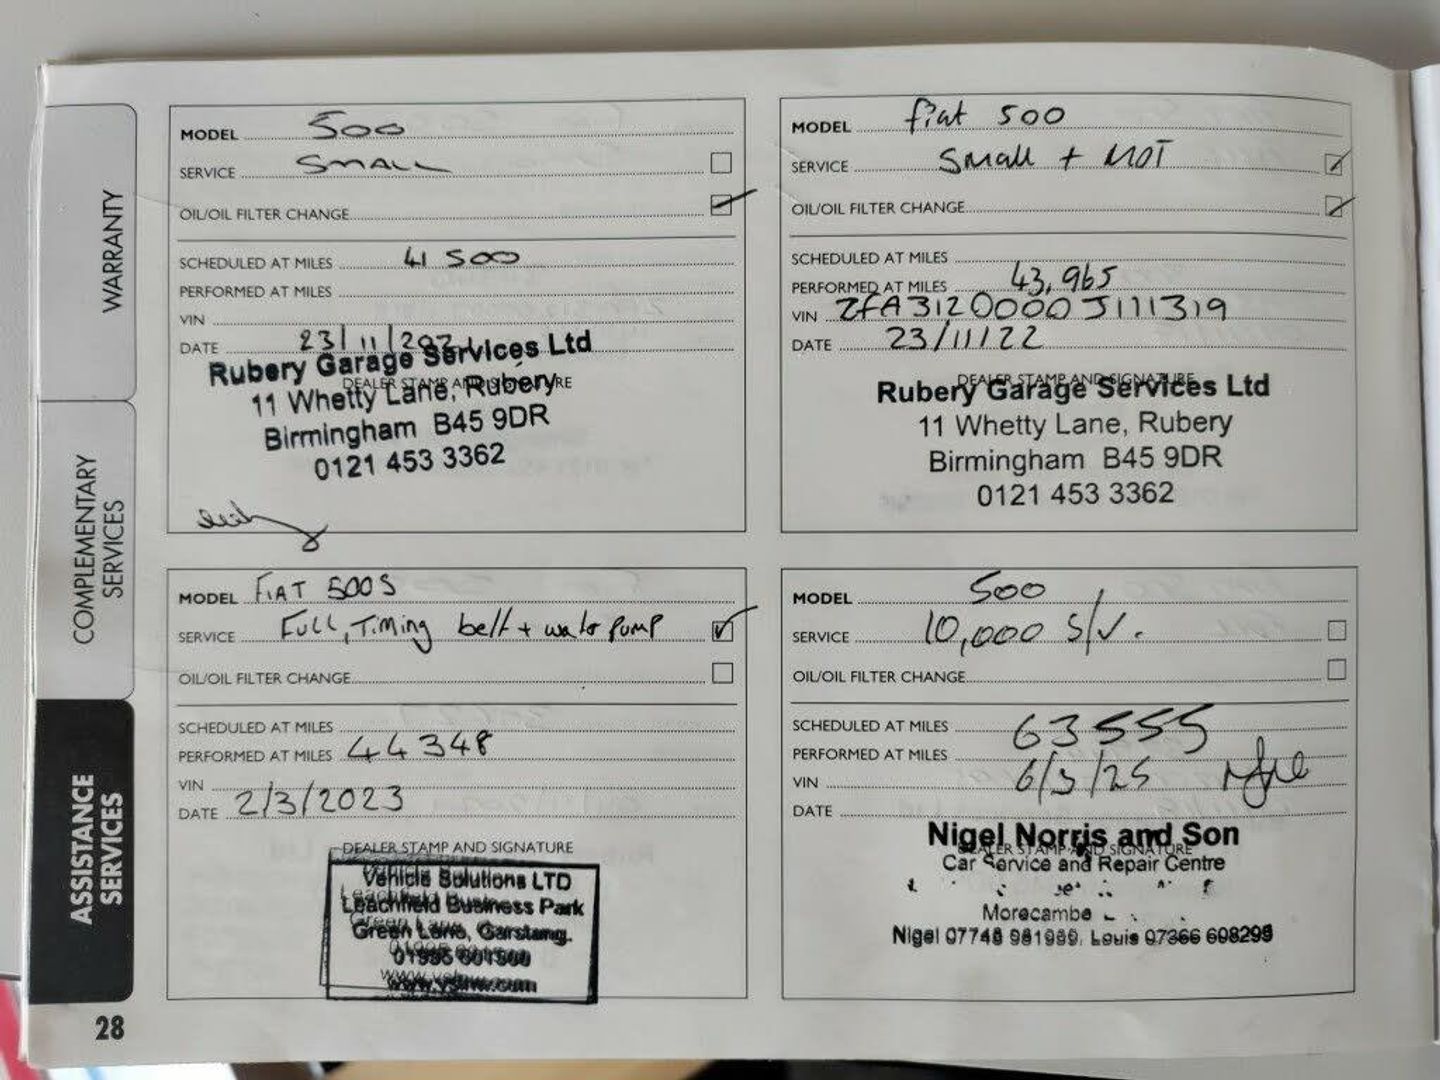 WARRANTY
COMPLEMENTARY
SERVICES
ASSISTANCE
SERVICES
28
MODEL 500
SERVICE SMALL
OIL/OIL FILTER CHANGE
SCHEDULED AT MILES 41 500
PERFORMED AT MILES
VIN
DATE 23/11/2021
DEALER STAMP AND SIGNATURE
Rubery Garage Services Ltd
11 Whetty Lane, Rubery
Birmingham B45 9DR
0121 453 3362
MODEL fiat 500
SERVICE Small + MOT
OIL/OIL FILTER CHANGE
SCHEDULED AT MILES
PERFORMED AT MILES 43,965
VIN ZFA3120000J111319
DATE 23/11/22
DEALER STAMP AND SIGNATURE
Rubery Garage Services Ltd
11 Whetty Lane, Rubery
Birmingham B45 9DR
0121 453 3362
MODEL FIAT 500S
SERVICE FULL, Timing belt + water pump
OIL/OIL FILTER CHANGE
SCHEDULED AT MILES
PERFORMED AT MILES 44348
VIN
DATE 2/3/2023
DEALER STAMP AND SIGNATURE
Vehicle Solutions LTD
Leachfield Business Park
Green Lane, Garstang.
MODEL 500
SERVICE 10,000 S/V.
OIL/OIL FILTER CHANGE
SCHEDULED AT MILES 63555
PERFORMED AT MILES
VIN 6/3/25
DATE
DEALER STAMP AND SIGNATURE
Nigel Norris and Son
Car Service and Repair Centre
Morecambe
Nigel 07748 981989, Louis 07366 608295